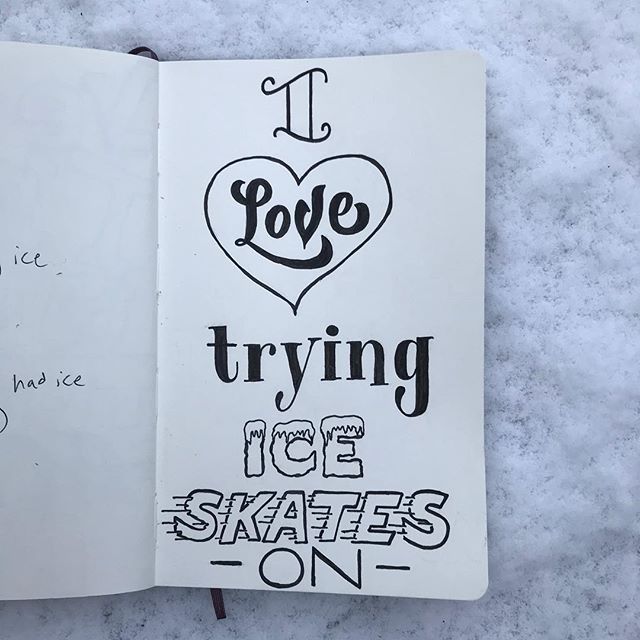 ice
had ice
I
Love
trying
ICE
SKATES
- ON -